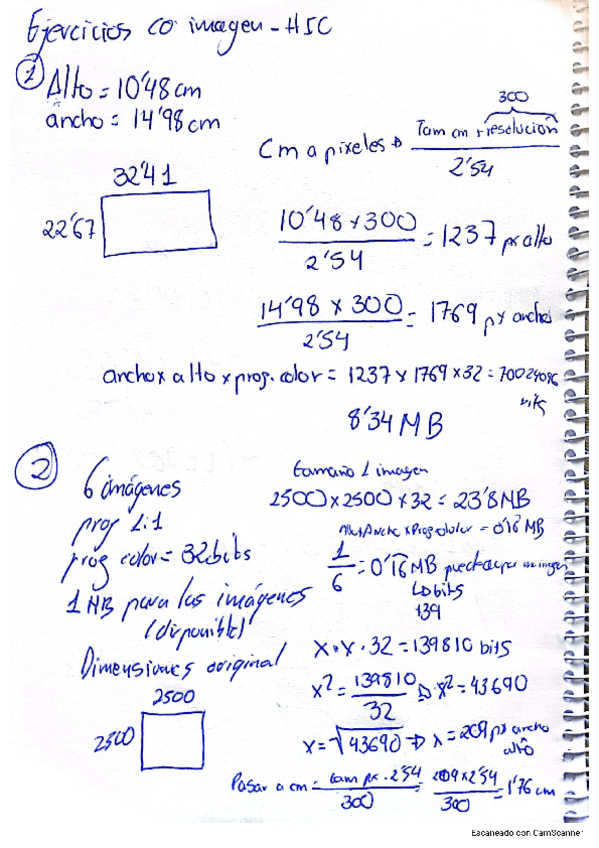 Ejercicios co imagen - HSC
① Alto = 10'48 cm
ancho = 14'98 cm
300
Cm a pixeles → Tam cm * resolución
2'54
32'41
22'67
10'48 x 300 = 1237 px alto
2'54
14'98 x 300 = 1769 px ancho
2'54
ancho x alto x prof. color = 1237 x 1769 x 32 = 70024096
bits
8'34 MB
②
6 imágenes
prop 1:1
prof color = 32bits
1 MB para las imágenes
(disponible)
Dimensiones original
2500
2500
tamaño 1 imagen
2500 x 2500 x 32 = 23'8 MB
Alto x Ancho x Prof color = 0'16 MB
1 = 0'16 MB
6
bits
139
x · x · 32 = 139810 bits
x² = 139810 → x² = 43690
32
x = √43690 → x = 209 px ancho
alto
Pasar a cm = tam px · 2'54 = 209 x 2'54 = 1'76 cm
300 300
Escaneado con CamScanner